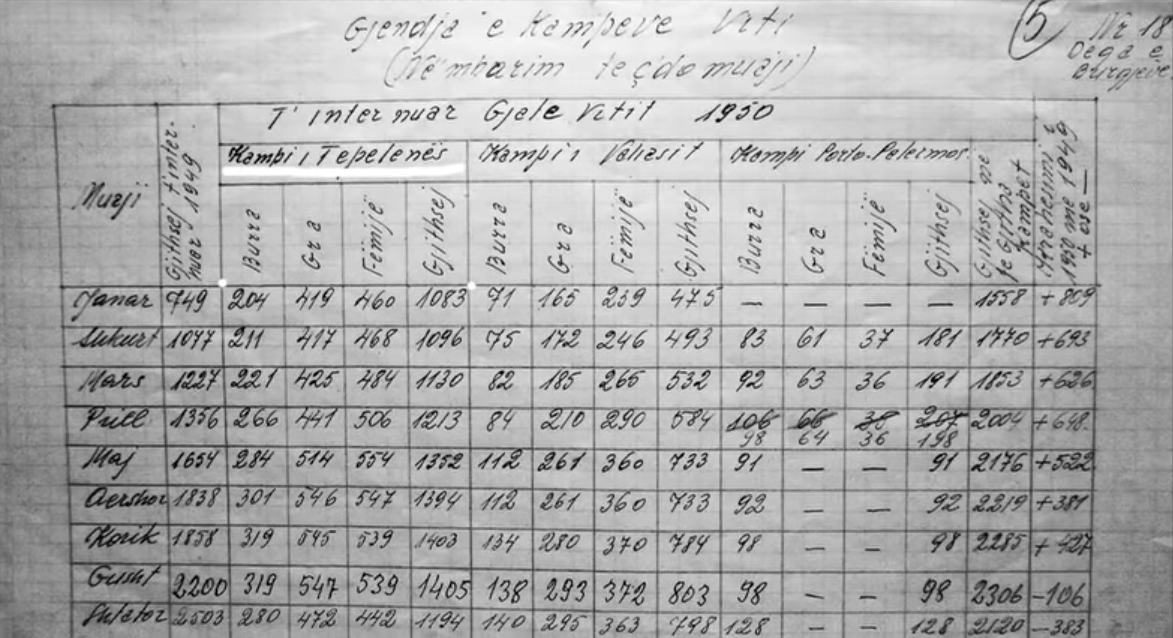 Gjendja e Kampeve Viti
(Në mbarim te çdo muaji)
5
Nr 18
Dega e
Burgjeve
T' internuar Gjate Vitit 1950
Muaji
Gjithsej t'inter-
nuar 1949
Kampi i Tepelenës Kampi i Valiasit Kampi Porto-Palermos.
Gjithsej me
te Gjitha
Kampet
1950 me 1949
+ ose —
Burra Gra Fëmijë Gjithsej Burra Gra Fëmijë Gjithsej Burra Gra Fëmijë Gjithsej
Janar 749 204 419 460 1083 71 165 239 475 — — — — 1558 +809
Shkurt 1077 211 417 468 1096 75 172 246 493 83 61 37 181 1770 +693
Mars 1227 221 425 484 1130 82 185 265 532 92 63 36 191 1853 +626
Prill 1356 266 441 506 1213 84 210 290 584 106 66 38 207 2004 +648
98 64 36 198
Maj 1654 284 514 554 1352 112 261 360 733 91 — — 91 2176 +522
Qershor 1838 301 546 547 1394 112 261 360 733 92 — — 92 2219 +381
Korik 1858 319 545 539 1403 134 280 370 784 98 — — 98 2285 +427
Gusht 2200 319 547 539 1405 138 293 372 803 98 — — 98 2306 -106
Shtator 2503 280 472 442 1194 140 295 363 798 128 — — 128 2120 -383